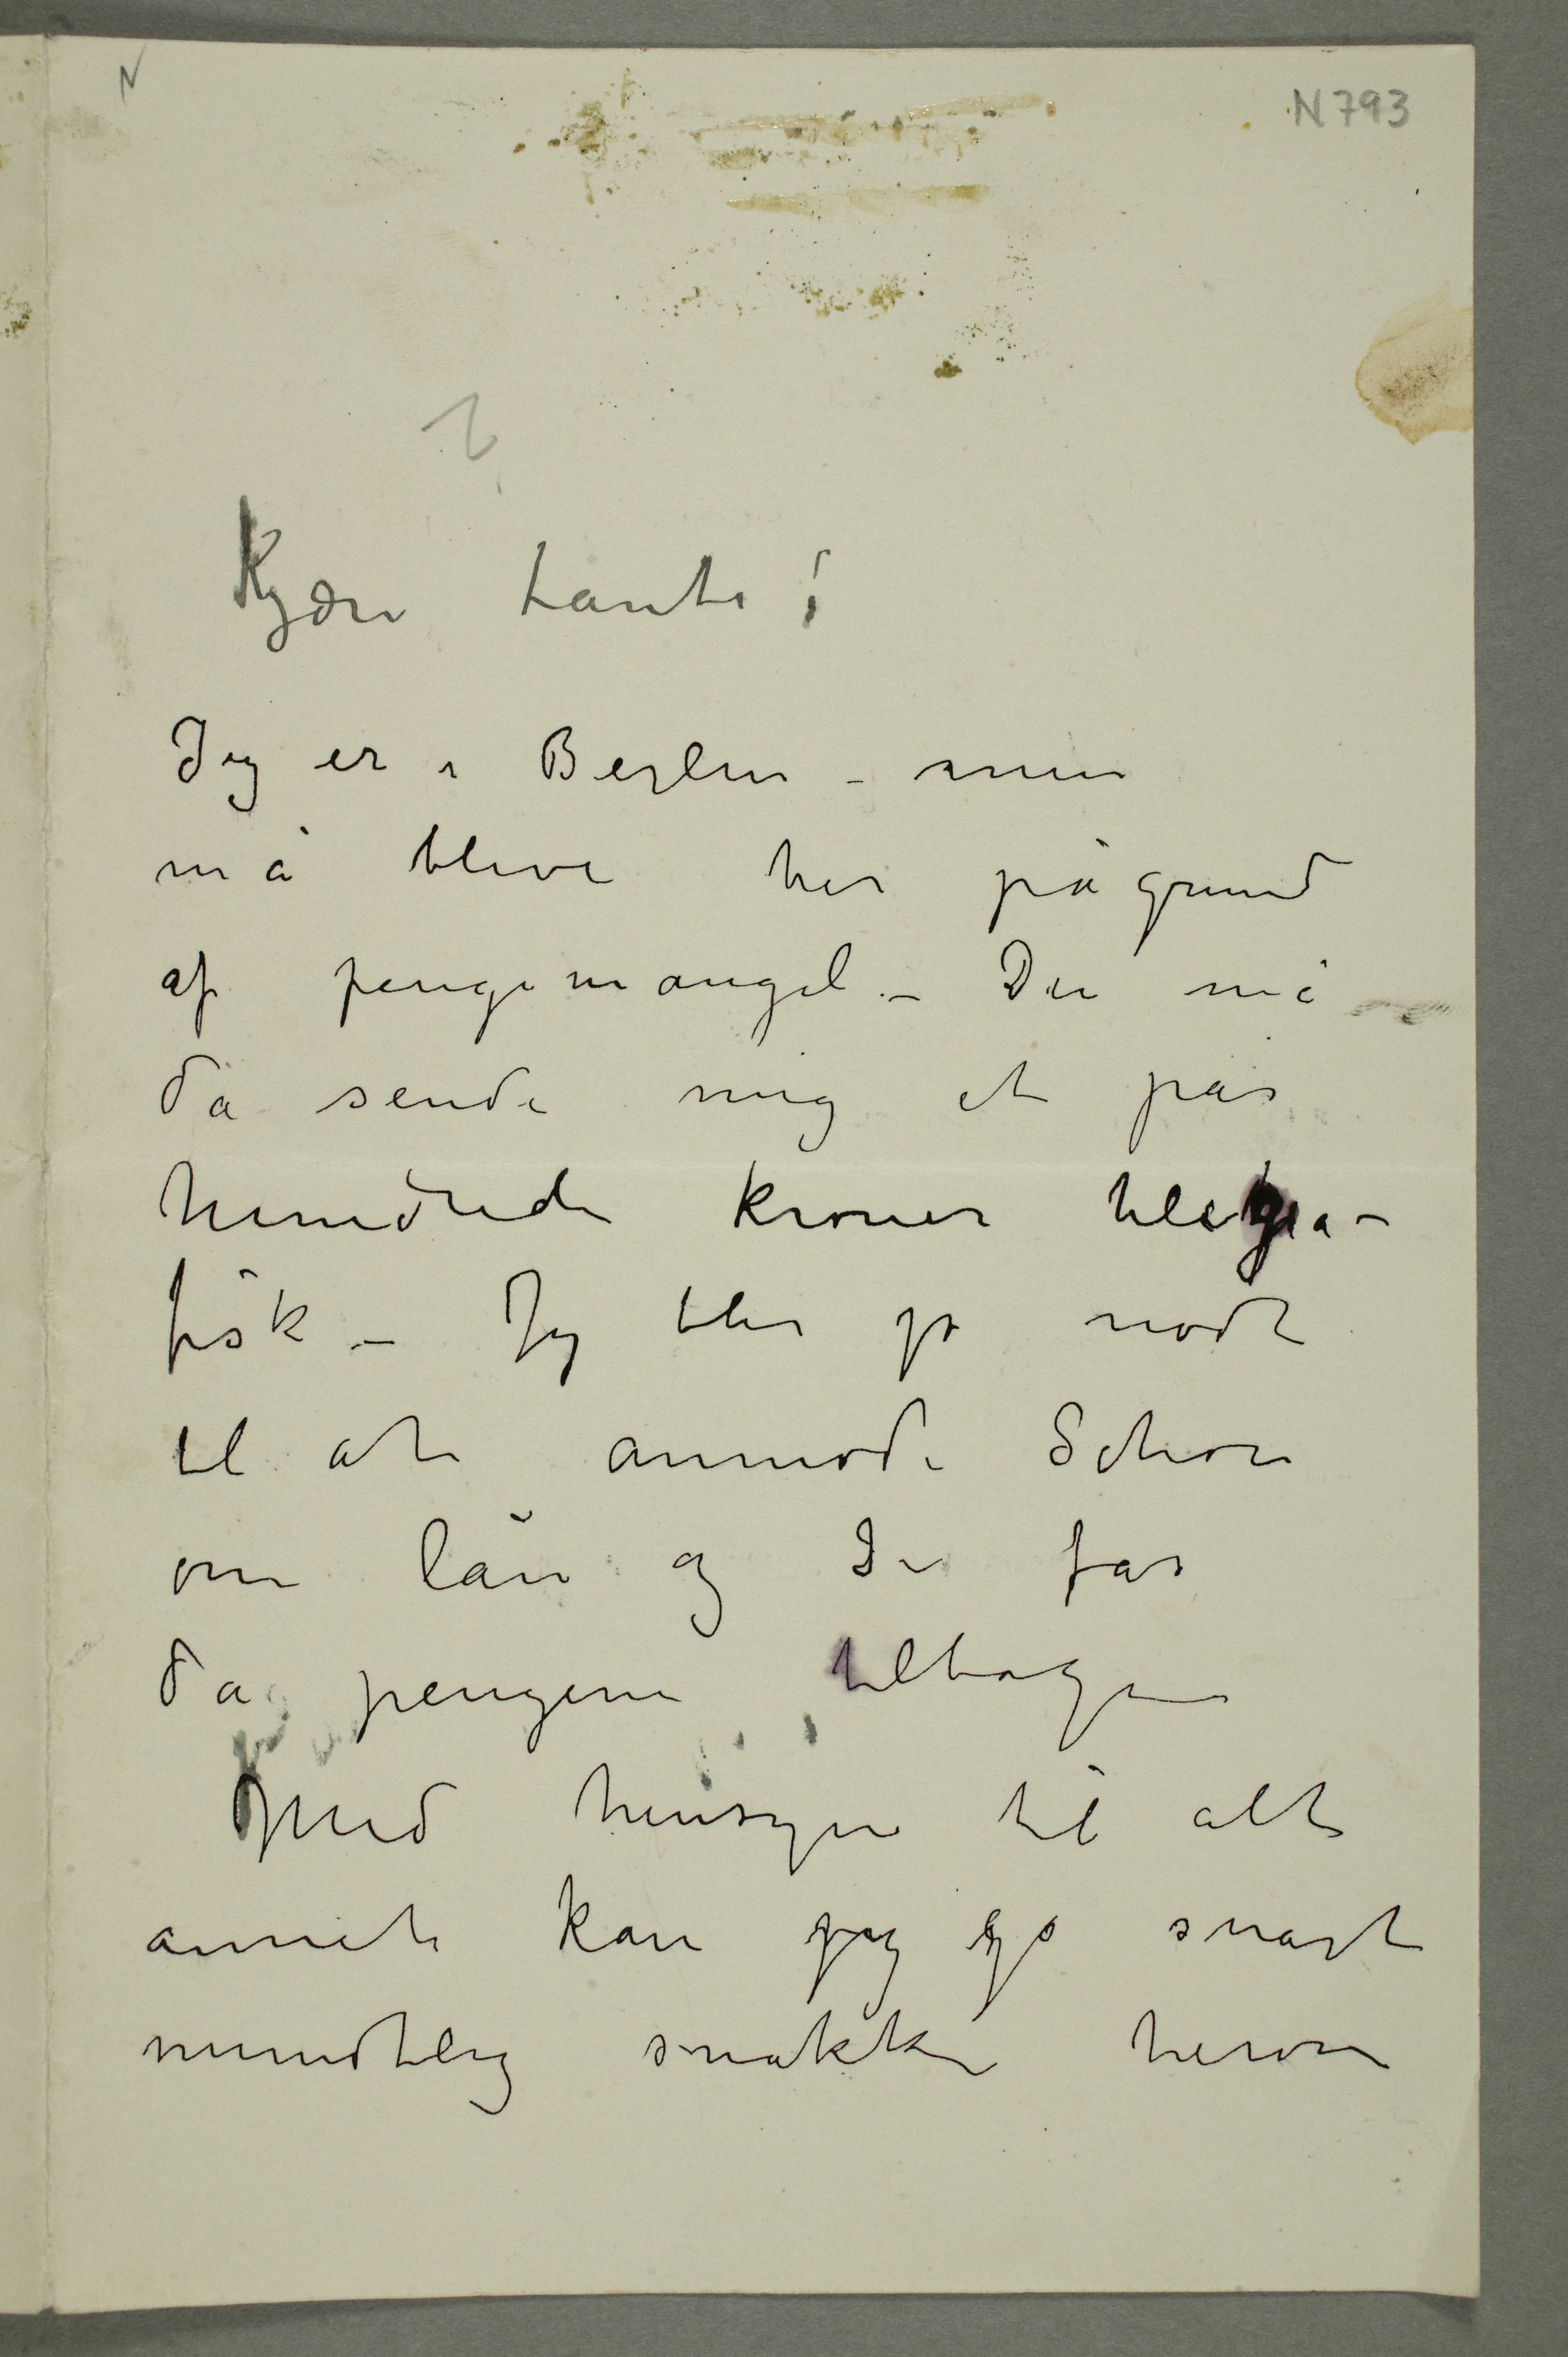 N
N 793
Kjære tante!
Jeg er i Berlin – men
må blive her på grund
af pengemangel – Du må
da sende mig et par
hundrede kroner telegra-
fisk – Jeg blir jo nødt
til at anmode Schou
om lån og Du får
da pengene tilbage
Med hensyn til alt
annet kan jeg jo snart
mundtlig snakke herom